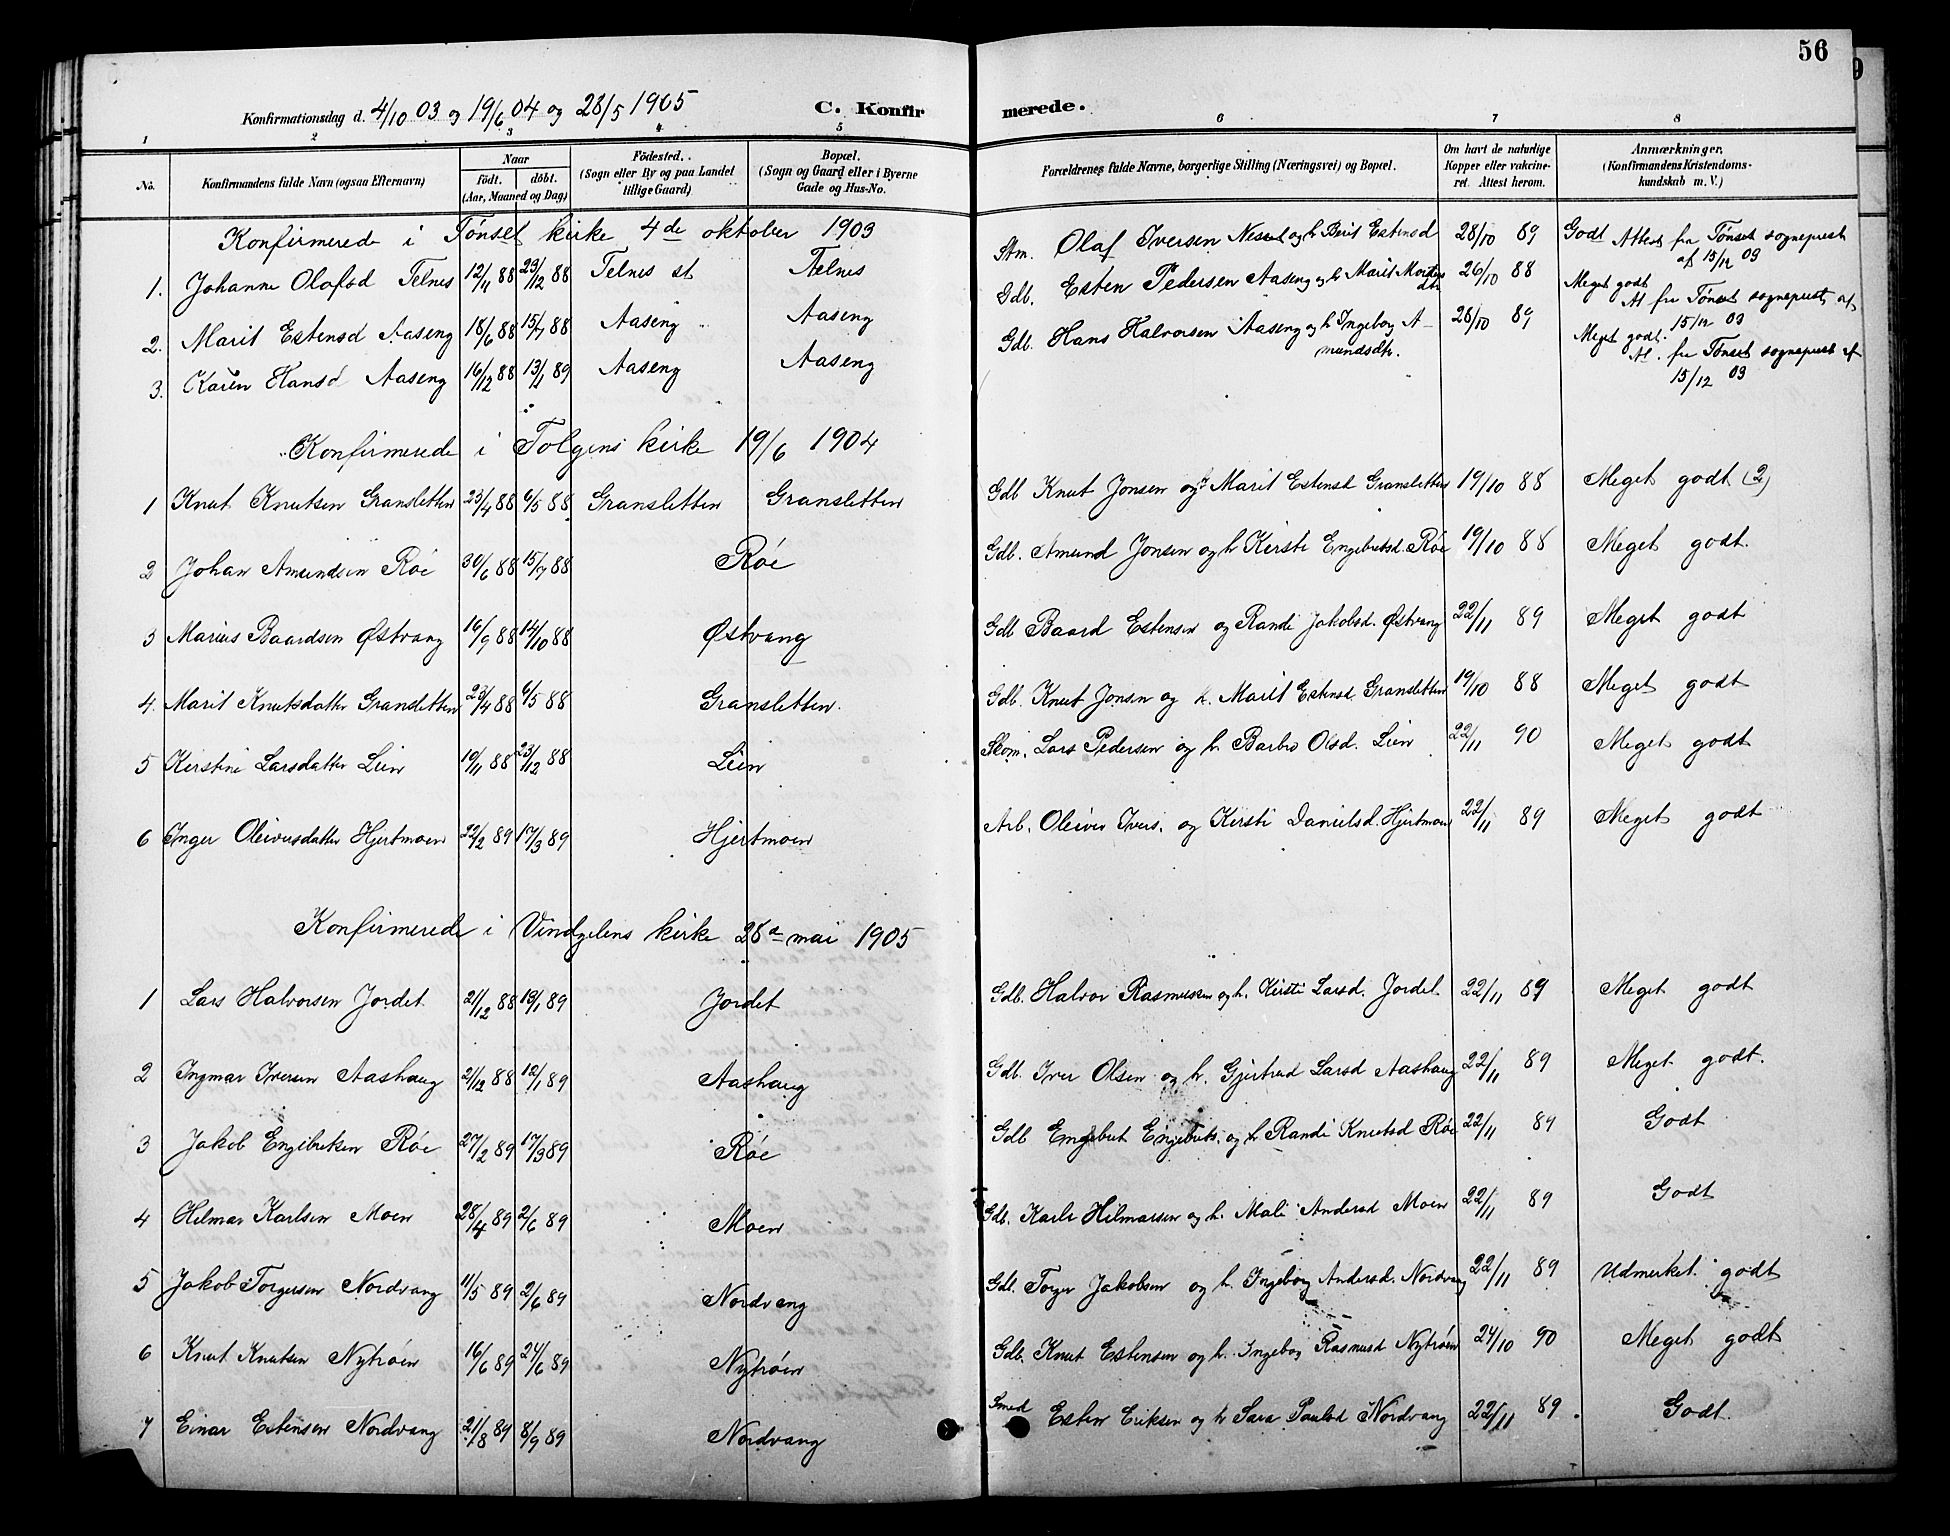 56
Konfirmationsdag d. 4/10 03 og 19/6 04 og 28/5 1905
C. Konfirmerede.
1 2 3 4 5 6 7 8
No.
Konfirmandens fulde Navn (ogsaa Efternavn)
Naar
födt. döbt.
(Aar, Maaned og Dag)
Födested.
(Sogn eller By og paa Landet tillige Gaard)
Bopæl.
(Sogn og Gaard eller i Byerne Gade og Hus-No.
Forældrenes fulde Navne, borgerlige Stilling (Næringsvei) og Bopæl.
Om havt de naturlige Kopper eller vakcineret. Attest herom.
Anmærkninger.
(Konfirmandens Kristendomskundskab m. V.)
Konfirmerede i Tønset kirke 4de oktober 1903
1. Johanne Olafsd Telnes 12/4 88 23/12 88 Telnes st Telnes Stm. Olaf Iversen og h Berit Estensd 28/10 89 Godt Attest fra Tønset sogneprest af 15/12 03
2. Marit Estensd Aaseng 18/6 88 15/7 88 Aaseng Aaseng Gdb. Esten Pedersen Aaseng og h Marit 26/10 88 Meget godt At fra Tønset sogneprest af 15/12 03
3. Karen Hansd Aaseng 16/12 88 13/1 89 Aaseng Aaseng Gdb. Hans Halvorsen Aaseng og h Ingebog Amundsdtr. 28/10 89 Meget godt. At. fra Tønset sogneprest af 15/12 03
Konfirmerede i Tolgens kirke 19/6 1904
1 Knut Knutsen Gransletten 23/4 88 6/5 88 Gransletten Gransletten Gdb Knut Jonsen og h Marit Estensd Gransletten 19/10 88 Meget godt (2)
2 Johan Amundsen Røe 30/6 88 15/7 88 Røe Gdb. Amund Jonsen og h Kirsti Engebretsd. Røe 19/10 88 Meget godt.
3 Marius Baardsen Østvang 16/9 88 14/10 88 Østvang Gdb Baard Estensen og Randi Jakobsd. Østvang 22/11 89 Meget godt
4. Marit Knutsdatter Gransletten 23/4 88 6/5 88 Gransletten. Gdb. Knut Jonsen og h. Marit Estensd Gransletten 19/10 88 Meget godt
5 Kerstine Larsdatter Lien 19/11 88 23/12 88 Lien Skom. Lars Pedersen og h Barbro Olsd. Lien 22/11 90 Meget godt
6 Inger Oleiversdatter Hjertmoen 22/2 89 17/3 89 Hjertmoen Arb. Oleiver Ivers. og Kirsti Danielsd. Hjertmoen 22/11 89 Meget godt
Konfirmerede i Vindgelens kirke 28de mai 1905
1 Lars Halvorsen Jordet 21/12 88 13/1 89 Jordet Gdb. Halvor Rasmussen og h. Kirsti Larsd. Jordet 22/11 89 Meget godt
2 Ingmar Iversen Aashaug 21/12 88 12/1 89 Aashaug Gdb. Iver Olsen og h. Gjertrud Larsd Aashaug 22/11 89 Meget godt.
3 Jakob Engebretsen Røe 27/2 89 17/3 89 Røe Gdb Engebret Engebrets. og h Randi Knutsd Røe 22/11 89 Godt
4 Hilmar Karlsen Moen 28/4 89 2/6 89 Moen Gdb. Karl Hilmarsen og h. Mali Andersd Moen 22/11 89 Godt
5 Jakob Torgersen Nordvang 11/5 89 2/6 89 Nordvang Gdb. Torger Jakobsen og h. Ingeborg Andersd. Nordvang 22/11 89 Udmerket godt
6 Knut Knutsen Nytrøen 16/6 89 24/6 89 Nytrøen Gdb. Knut Estensen og h. Ingebog Rasmusd Nytrøen 24/10 90 Meget godt
7 Einar Estensen Nordvang 21/8 89 8/9 89 Nordvang Smed Esten Eriksen og h Sara Paulsd Nordvang 22/11 89. Godt.